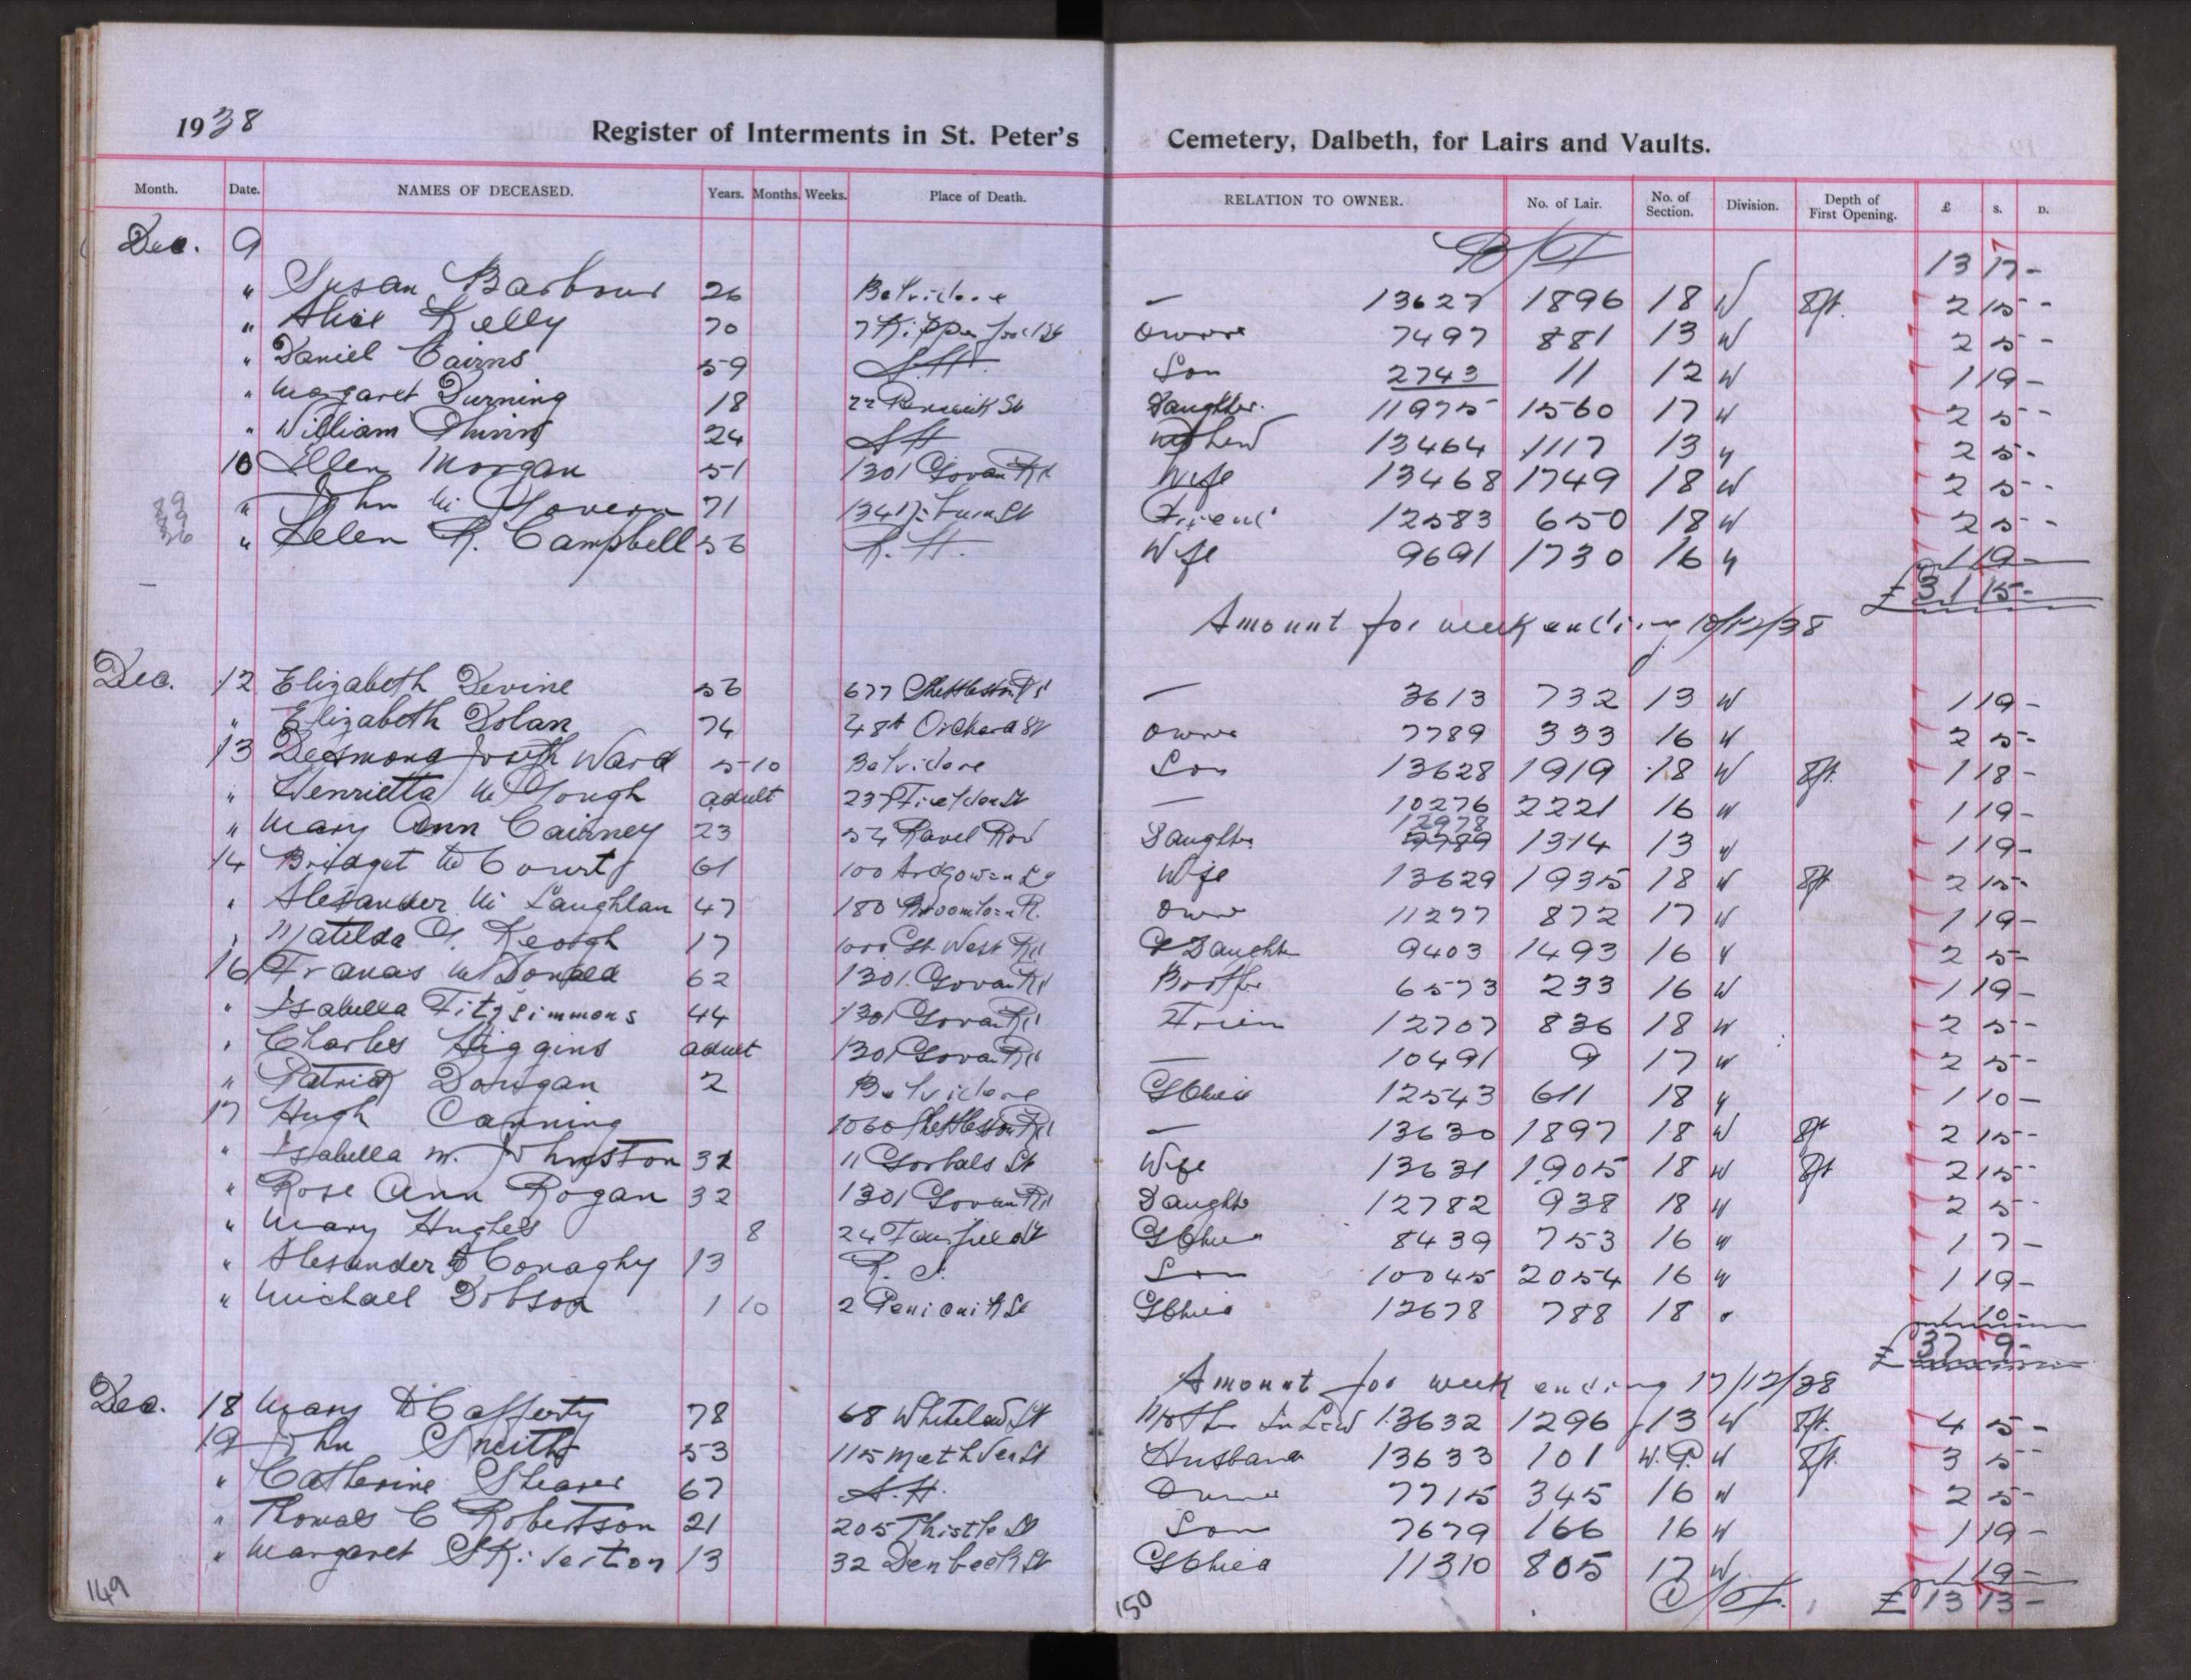 1938 Register of Interments in St. Peter's Cemetery, Dalbeth, for Lairs and Vaults.
Month. Date. NAMES OF DECEASED. Years. Months. Weeks. Place of Death. RELATION TO OWNER. No. of Lair. No. of Section. Division. Depth of First Opening. £ s. D.
Dec. 9 B/F 13 17 -
" Susan Barbour 26 Belvidere — 13627 1896 18 W 8ft. 2 15 -
" Alice Kelly 70 owner 7497 881 13 W 2 5 -
" Daniel Cairns 59 Son 2743 11 12 W 1 19 -
" Margaret Durning 18 22 Renwick St Daughter. 11975 1560 17 W 2 5 -
" William 24 Nephew 13464 1117 13 " 2 5 -
10 Ellen Morgan 51 1301 Govan Rd Wife 13468 1749 18 W 2 5 -
" John Mc Govern 71 Friend 12583 650 18 W 2 5 -
89 39 36
" Helen R. Campbell 56 R. H. Wife 9691 1730 16 " 1 19 -
£31 15 -
Amount for week ending 10/12/38
Dec. 12 Elizabeth Devine 56 677 Shettleston Rd — 3613 732 13 W 1 19 -
" Elizabeth Dolan 74 48A Orchard St owner 7789 333 16 W 2 5 -
13 Desmond Joseph Ward 5-10 Belvidere Son 13628 1919 18 W 8ft. 1 18 -
" Henrietta Mc Gough adult — 10276 2221 16 W 1 19 -
" Mary Ann Cairney 23 Daughter 12978 1314 13 " 1 19 -
14 Bridget Mc Court 61 100 Ardgowan St Wife 13629 1935 18 W 8ft 2 15 -
" Alexander Mc Laughlan 47 180 Owner 11277 872 17 W 1 19 -
" Matilda G. Keogh 17 1000 Gt. West Rd G Daughter 9403 1493 16 " 2 5 -
16 Francis Mc Donald 62 1301 Govan Rd Brother 6573 233 16 W 1 19 -
" Isabella Fitzsimmons 44 1301 Govan Rd Friend 12707 836 18 W 2 5 -
" Charles Higgins adult 1301 Govan Rd — 10491 9 17 W 2 5 -
" Patrick Dougan 2 Belvidere GChild 12543 611 18 " 1 10 -
17 Hugh Canning 1060 Shettleston Rd — 13630 1897 18 W 8ft 2 15 -
" Isabella M. Johnston 32 11 Gorbals St Wife 13631 1905 18 W 8ft 2 15 -
" Rose Ann Rogan 32 1301 Govan Rd Daughter 12782 938 18 W 2 5 -
" Mary Hughes 8 24 Fairfield St GChild 8439 753 16 W 1 7 -
" Alexander Mc Conaghy 13 R. I. Son 10045 2054 16 W 1 19 -
" Michael Dobson 1 10 2 Penicuik St GChild 12678 788 18 " 1 10 -
£37 9 -
Amount for week ending 17/12/38
Dec. 18 Mary Mc Cafferty 78 68 Whitelaw St Mother In Law 13632 1296 13 W 8ft. 4 5 -
19 John Sneith 53 115 Methven St Husband 13633 101 W.P. W 8ft. 3 5 -
" Catherine Shearer 67 S.H. Owner 7715 345 16 W 2 5 -
" Thomas C Robertson 21 205 Thistle St Son 7679 166 16 W 1 19 -
" Margaret Skiverton 13 32 Denbeck St GChild 11310 805 17 W 1 19 -
C/F. £13 13 -
149 150